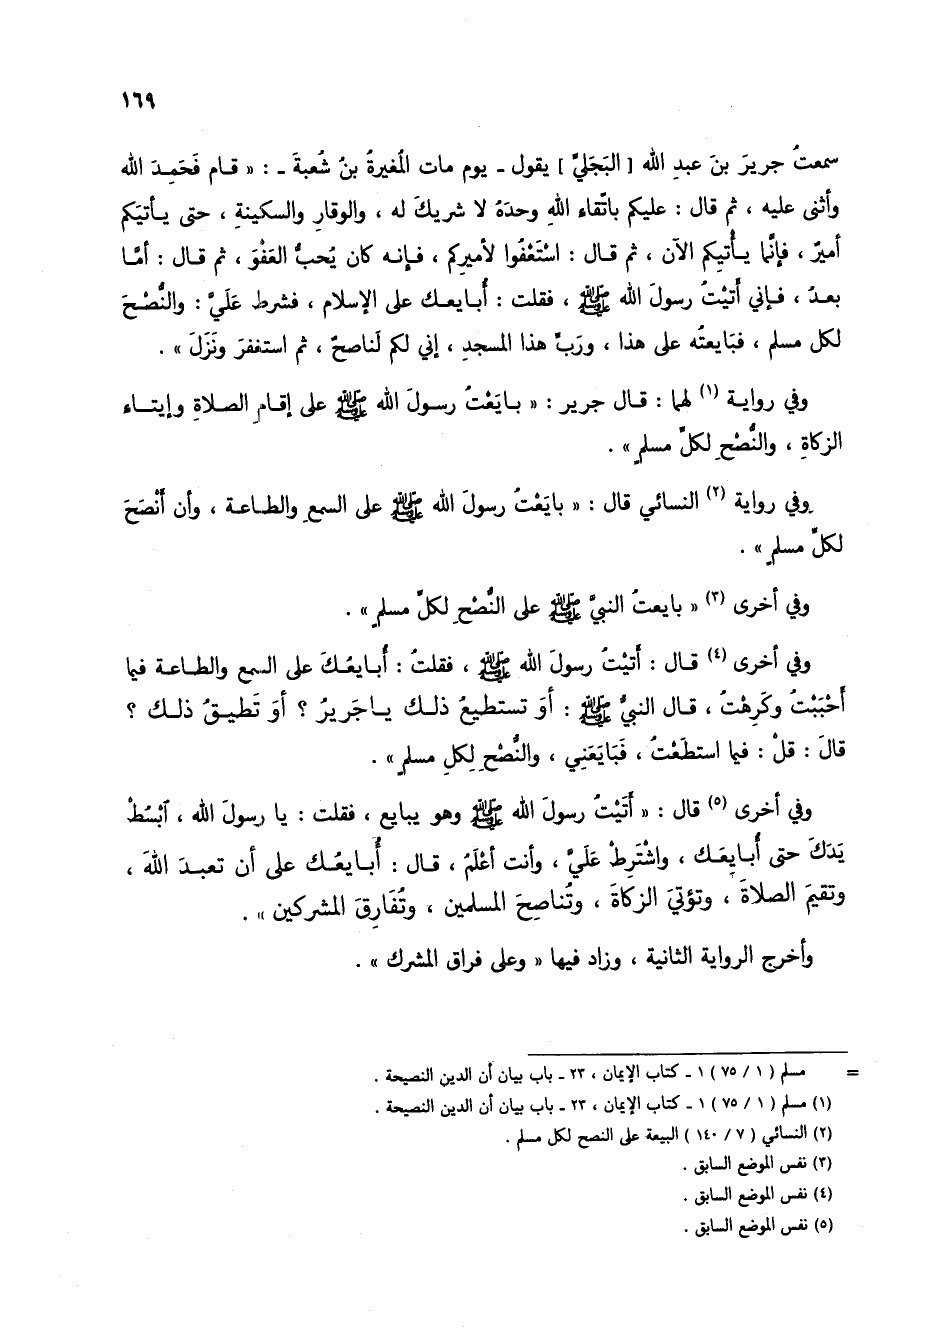 ١٦٩
سمعتُ جريرَ بنَ عبدِ الله [ البَجَليَّ ] يقول ـ يوم مات المُغيرةُ بنُ شُعبةَ ـ : « قـام فَحَمِـدَ الله
وأثنى عليه ، ثم قال : عليكم باتّقاء اللهِ وحدَهُ لا شريكَ له ، والوقارِ والسكينةِ ، حتى يـأتيَكم
أميرٌ ، فإنَّما يـأْتيكم الآن ، ثم قـال : اسْتَعْفُوا لأميرِكم ، فـإنـه كان يُحبُّ العَفْوَ ، ثم قـال : أمّـا
بعدُ ، فـإني أَتيْتُ رسولَ الله ﷺ ، فقلت : أُبـايعـك على الإسلام ، فشرط عَلَيَّ : والنُّصْـحَ
لكل مسلم ، فبَايعتُه على هذا ، ورَبِّ هذا المسجدِ ، إني لكم لَناصحٌ ، ثم استغفرَ ونَزَلَ » .
وفي روايـة (١) لهما : قـال جرير : « بـايَعْتُ رسـولَ الله ﷺ على إقـامِ الصـلاةِ وإيتـاء
الزكاةِ ، والنُّصْحِ لكلِّ مسلمٍ » .
وفي رواية (٢) النسائي قال : « بايَعْتُ رسولَ الله ﷺ على السمعِ والطـاعـة ، وأن أَنْصَحَ
لكلِّ مسلمٍ » .
وفي أخرى (٣) « بايعتُ النبيَّ ﷺ على النُّصْحِ لكلِّ مسلمٍ » .
وفي أخرى (٤) قـال : أَتيْتُ رسولَ الله ﷺ ، فقلتُ : أُبـايعُـكَ على السمع والطـاعـة فيما
أَحْبَبْتُ وكَرِهْتُ ، قـال النبيُّ ﷺ : أوَ تستطيعُ ذلـك يـاجَريرُ ؟ أوَ تَطيـقُ ذلـك ؟
قالَ : قلْ : فيما استطَعْتُ ، فَبَايَعَنِي ، والنُّصْحِ لِكلِ مسلمٍ » .
وفي أخرى (٥) قال : « أَتَيْتُ رسولَ الله ﷺ وهو يبايع ، فقلت : يا رسولَ الله ، ٱبْسُطْ
يَدَكَ حتى أُبـايِعَـك ، واشْتَرِطْ عَلَيَّ ، وأنت أعْلَمُ ، قـال : أُبـايعُـك على أن تعبـدَ اللهَ ،
وتقيمَ الصلاةَ ، وتؤتيَ الزكاةَ ، وتُناصِحَ المسلمين ، وتُفَارِقَ المشركين » .
وأخرج الرواية الثانية ، وزاد فيها « وعلى فراق المشرك » .
= مسلم ( ١ / ٧٥ ) ١ ـ كتاب الإيمان ، ٢٣ ـ باب بيان أن الدين النصيحة .
(١) مسلم ( ١ / ٧٥ ) ١ ـ كتاب الإيمان ، ٢٣ ـ باب بيان أن الدين النصيحة .
(٢) النسائي ( ٧ / ١٤٠ ) البيعة على النصح لكل مسلم .
(٣) نفس الموضع السابق .
(٤) نفس الموضع السابق .
(٥) نفس الموضع السابق .